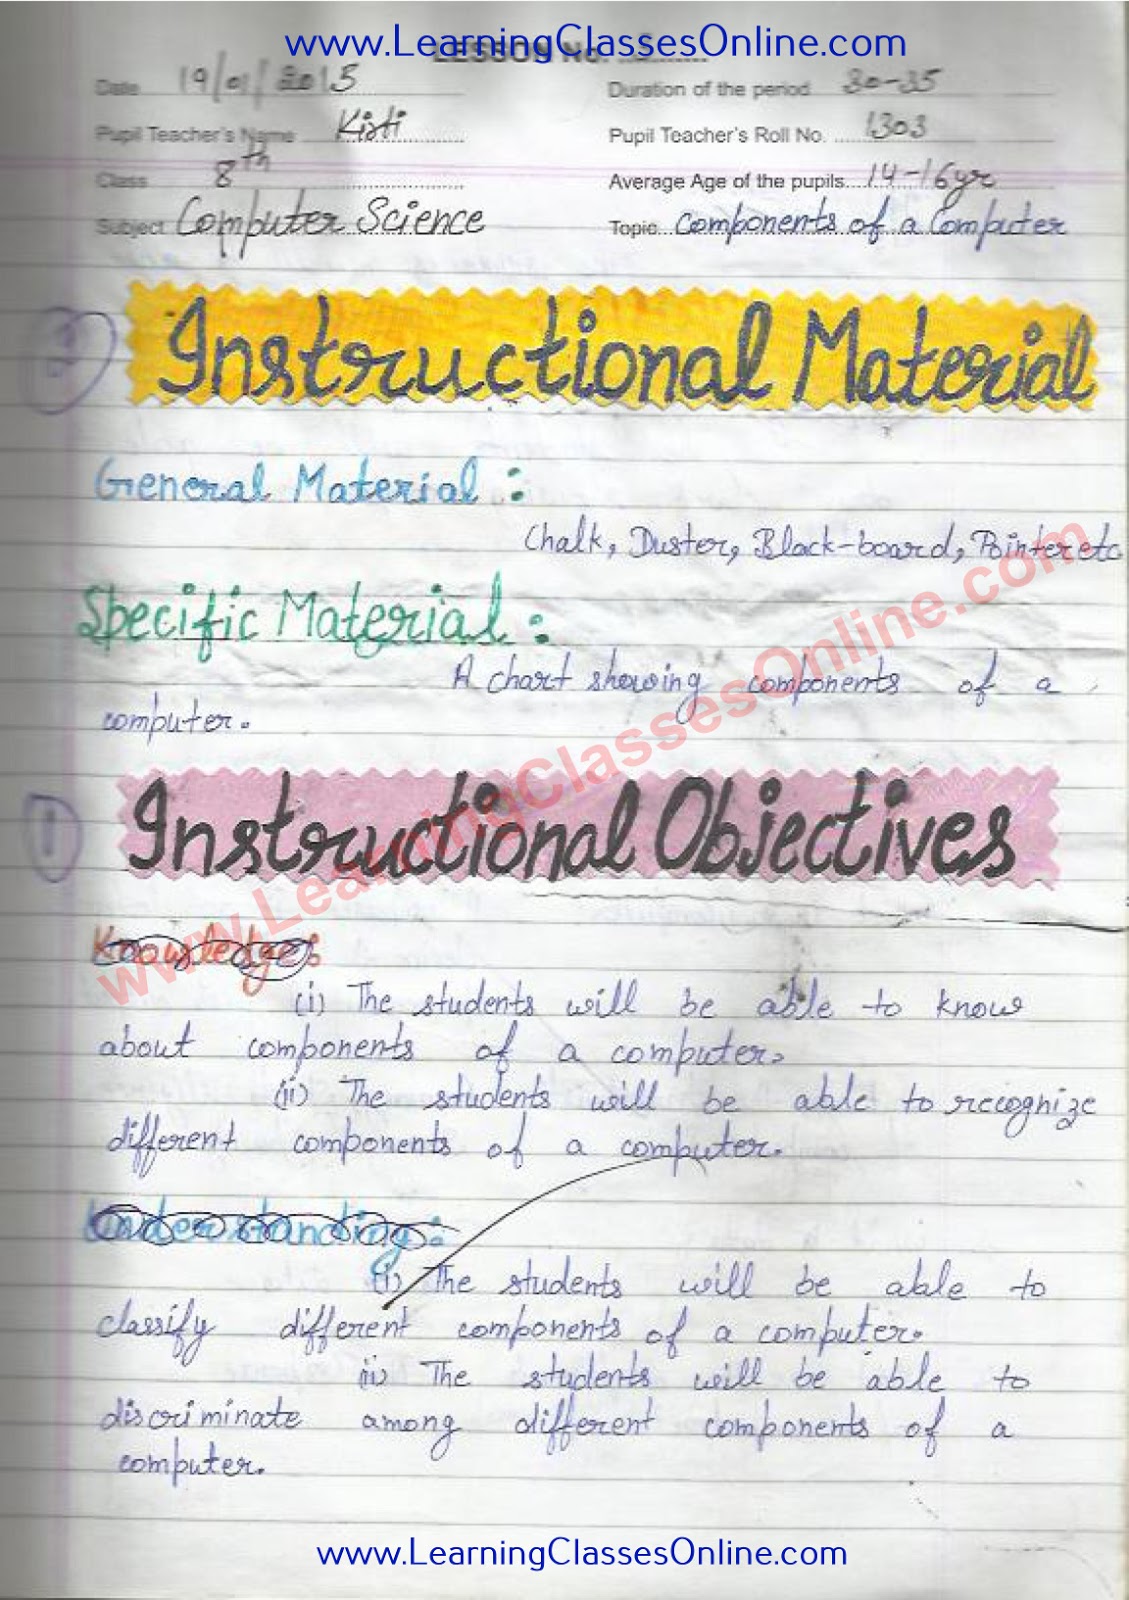 www.LearningClassesOnline.com
LESSON No.
Date 19/01/2015 Duration of the period 30-35
Pupil Teacher's Name Kisti Pupil Teacher's Roll No. 1303
Class 8th Average Age of the pupils 14-16yr
Subject Computer Science Topic Components of a Computer
2
Instructional Material
General Material :
Chalk, Duster, Black-board, Pointer etc
Specific Material :
A chart showing components of a
computer.
1
Instructional Objectives
www.LearningClassesOnline.com
Knowledge:
(i) The students will be able to know
about components of a computer.
(ii) The students will be able to recognize
different components of a computer.
Understanding:
(i) The students will be able to
classify different components of a computer.
ii) The students will be able to
discriminate among different components of a
computer.
www.LearningClassesOnline.com